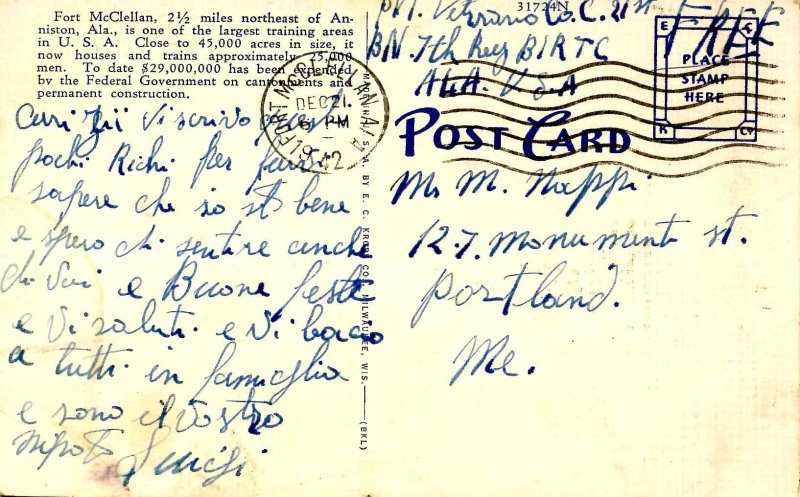 Fort McClellan, 2½ miles northeast of An-
niston, Ala., is one of the largest training areas
in U. S. A. Close to 45,000 acres in size, it
now houses and trains approximately 25,000
men. To date $29,000,000 has been expended
by the Federal Government on cantonments and
permanent construction.
Cari Zii Vi scrivo
pochi Richi per farvi
sapere che io stò bene
e spero di sentire anche
di Voi e Buone feste
e Vi saluti e Vi bacio
a tutti in famiglia
e sono il vostro
nipote
Luigi
MADE IN U. S. A. BY E. C. KROPP CO., MILWAUKEE, WIS.
(BKL)
31724N
Pvt. Co. C. 21st
BN 7th Reg BIRTC
ALA. U S A
FREE
FORT McCLELLAN ALA
DEC 21
6 PM
1942
E
K
PLACE
STAMP
HERE
POST CARD
Mr M. Nappi
127 Monument st.
Portland.
Me.